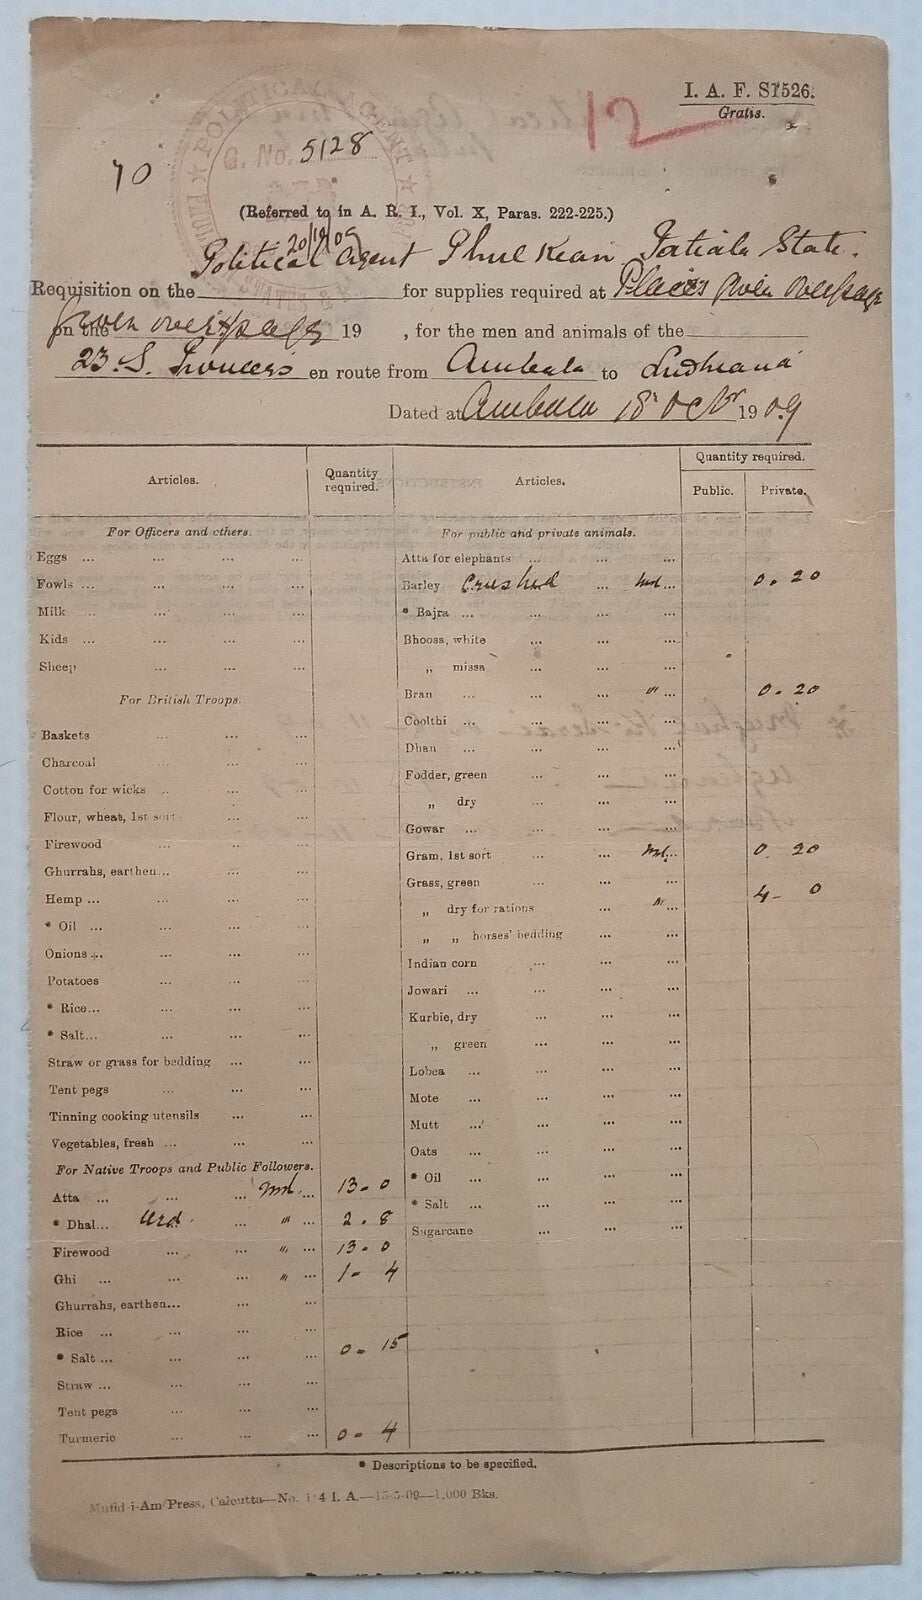 I. A. F. S1526.
Gratis.
12
POLITICAL AGENT
G. No. 5128
70
20/10/09
(Referred to in A. R. I., Vol. X, Paras. 222-225.)
Political Agent Phulkean Patiala State.
Requisition on the for supplies required at Places given overpage
on the given overpage 19 , for the men and animals of the
23. S. Pioneers en route from Ambala to Ludhiana
Dated at Ambala 18 Octbr 1909
Articles. Quantity required. Articles. Quantity required.
Public. Private.
For Officers and others. For public and private animals.
Eggs ... ... ... Atta for elephants ... ... ...
Fowls ... ... ... Barley Crushed ... Md... 0. 20
Milk ... ... ... * Bajra ... ... ... ...
Kids ... ... ... Bhoosa, white ... ... ...
Sheep ... ... ... „ missa ... ... ...
For British Troops. Bran ... ... " ... 0. 20
* Baskets ... ... ... Coolthi ... ... ... ...
Charcoal ... ... ... Dhan ... ... ... ...
Cotton for wicks ... ... ... Fodder, green ... ... ...
Flour, wheat, 1st sort ... ... „ dry ... ... ...
Firewood ... ... ... Gowar ... ... ... ...
Ghurrahs, earthen... ... ... Gram, 1st sort ... ... Md... 0. 20
Hemp ... ... ... ... Grass, green ... ... ...
* Oil ... ... ... ... „ dry for rations ... " ... 4- 0
Onions ... ... ... ... „ „ horses' bedding ... ...
Potatoes ... ... ... Indian corn ... ... ...
* Rice... ... ... ... Jowari ... ... ... ...
* Salt... ... ... ... Kurbie, dry ... ... ...
Straw or grass for bedding ... ... „ green ... ... ...
Tent pegs ... ... ... Lobea ... ... ... ...
Tinning cooking utensils ... ... Mote ... ... ... ...
Vegetables, fresh ... ... ... Mutt ... ... ... ...
For Native Troops and Public Followers. Oats ... ... ...
Atta ... ... ... Md. ... 13- 0 * Oil ... ... ... ...
* Dhal... Urd. ... " ... 2. 8 * Salt ... ... ... ...
Firewood ... ... " ... 13- 0 Sugarcane ... ... ...
Ghi ... ... ... " ... 1- 4
Ghurrahs, earthen... ... ...
Rice ... ... ... ...
* Salt ... ... ... ... 0- 15
Straw ... ... ... ...
Tent pegs ... ... ...
Turmeric ... ... ... 0- 4
* Descriptions to be specified.
Mufid-i-Am Press, Calcutta—No. I.A.—15-5-09—1,000 Bks.